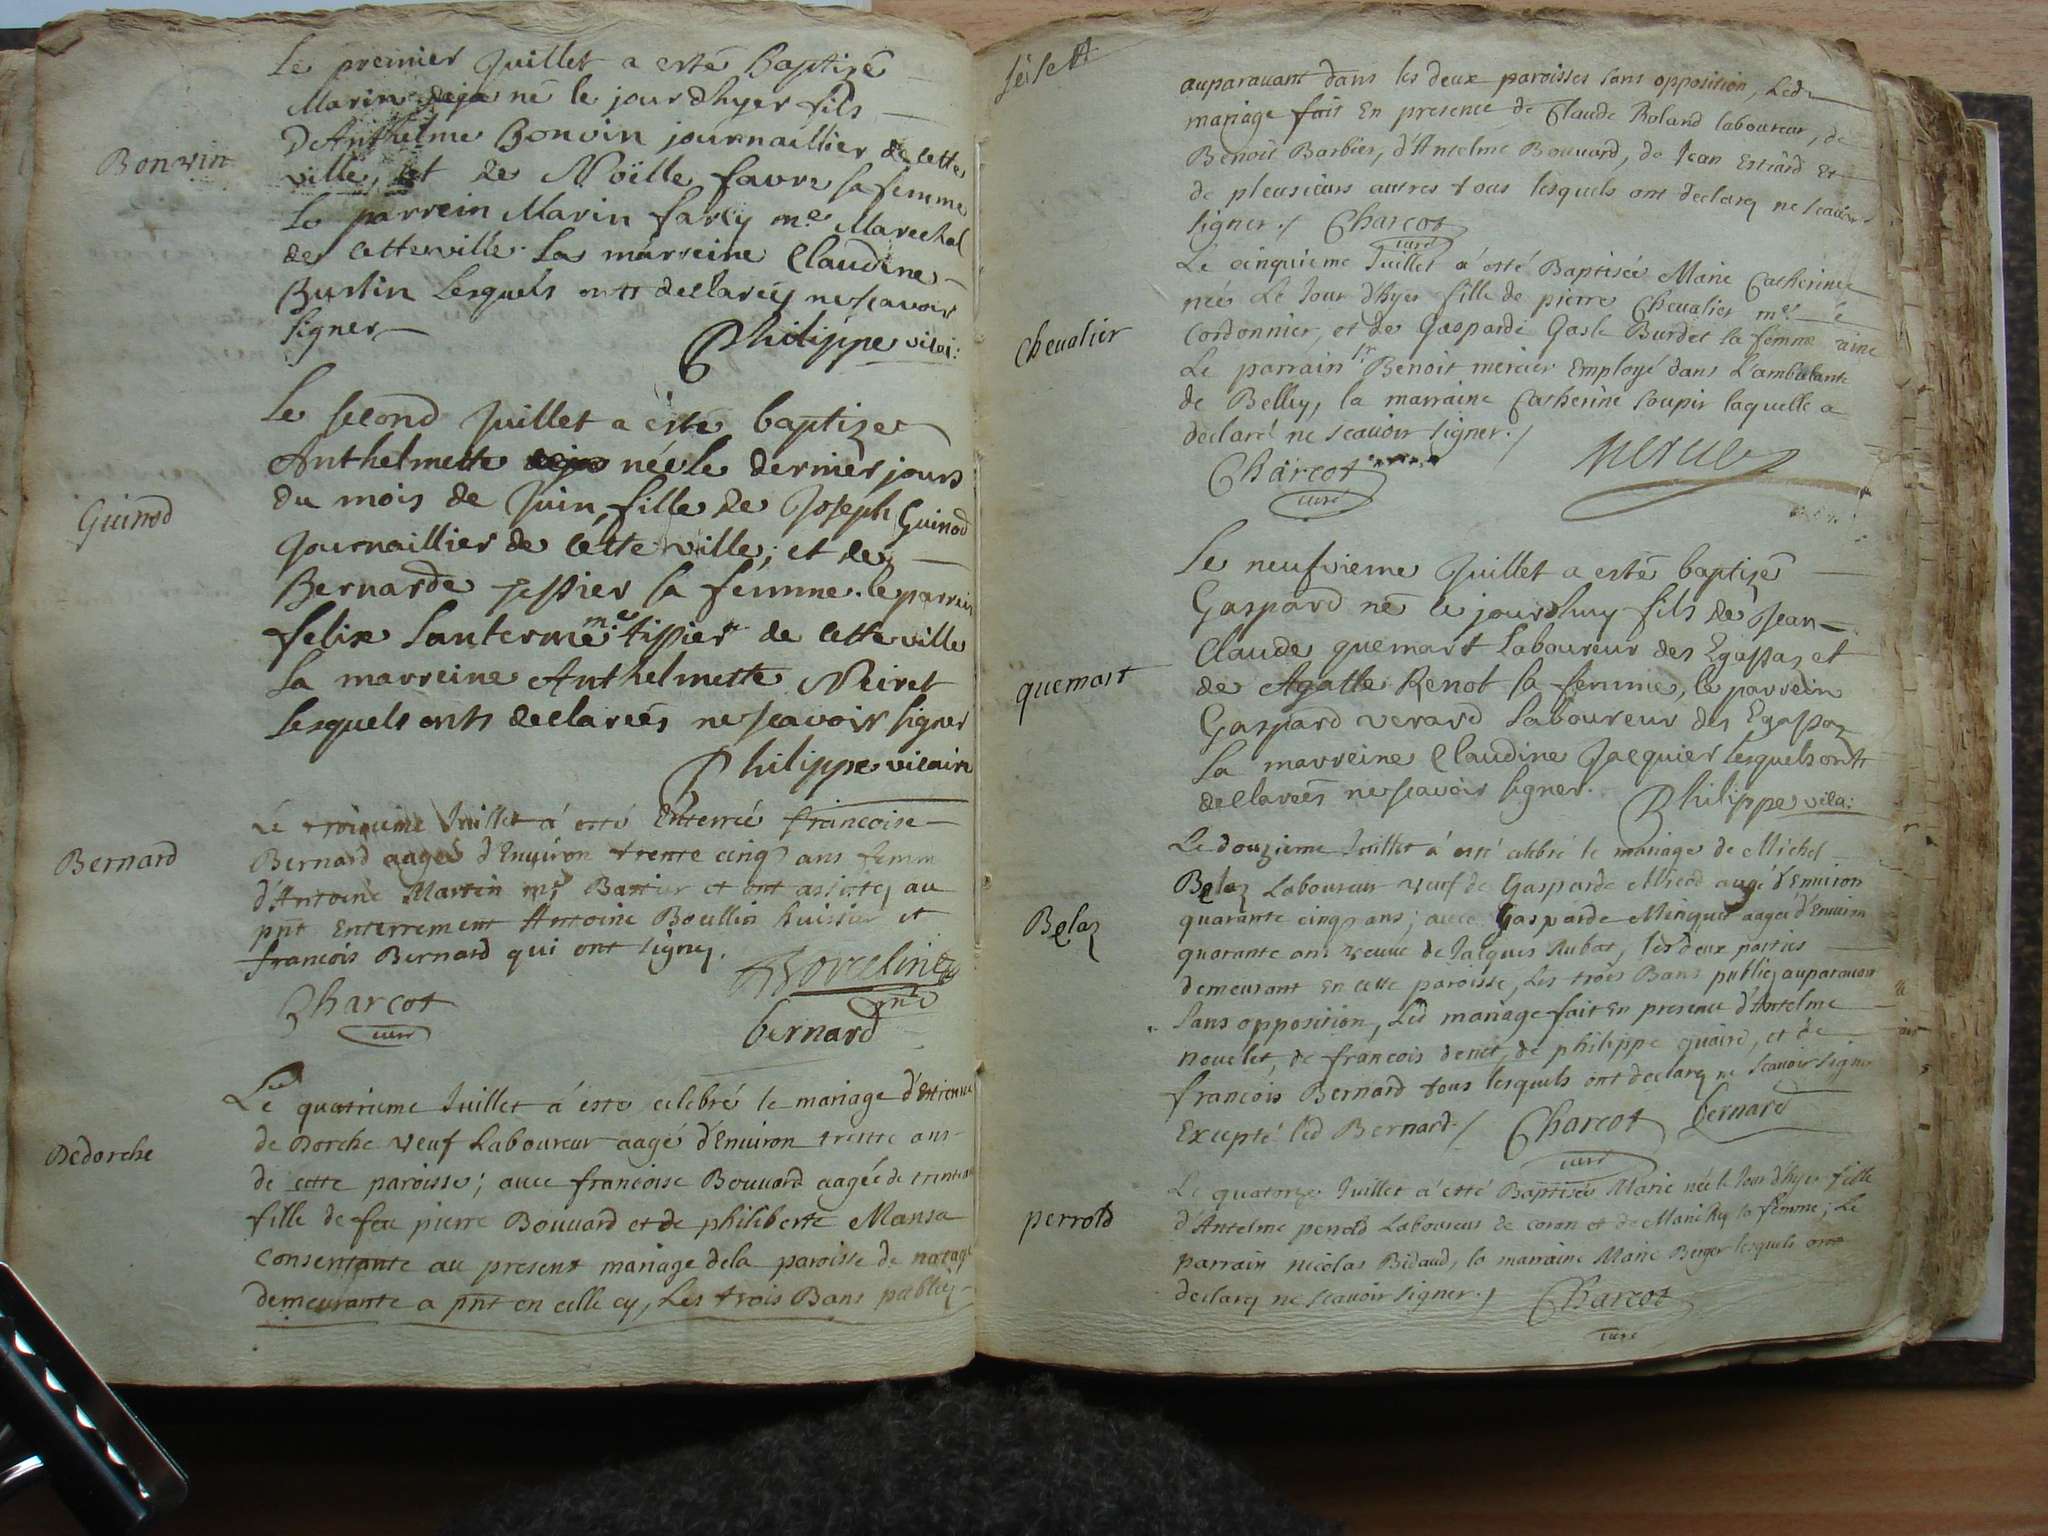 Bonvin
Le premier Juillet a esté Baptizé
Marin né le jour dhyer fils
D'Anthelme Bonvin journaillier de cette
ville, et de Noëlle favre sa femme
Le parrein Marin farcy me Marechal
de cette ville. La marreine Claudine
Burlin Lesquels ontt declaréz ne scavoir
signer
Philippe vicai:
Guinod
Le second Juillet a esté baptizé
Anthelmette née le dernier jours
du mois de Juin, fille de Joseph Guinod
Journaillier de cette ville, et de
Bernarde tessier sa femme. le parrein
felix me tissier de cette ville
La marreine Anthelmette Neiret
lesquels onts declareés ne scavoir signer
Philippe vicaire
Bernard
Le troisieme Juillet a esté Enterrée francoise
Bernard aageé d'Environ trente cinq ans femm
d'Antoine Martin mr et ont assistez au
pnt Enterrement Antoine Boullin huissier et
francois Bernard qui ont signez.
Charcot
curé
bernard
Dedorche
Le quatrieme Juillet a esté celebré le mariage d'Estienne
de Dorche veuf Laboureur aagé d'Environ trente ans
de cette paroisse; avec francoise Bouvard aagée de trente
fille de feu pierre Bouvard et de philiberte Mansa
Consentante au present mariage dela paroisse de
demeurante a pnt en celle cy, Les trois Bans publiez
auparavant dans les deux paroisses sans opposition, Led
mariage fait En presence de Claude Roland laboureur, de
Benoit Barbier, d'Antelme Bouvard, de Jean Estrard Et
de pleusieurs autres tous lesquels ont declarez ne scavoir
signer ./ Charcot
curé
Chevalier
Le cinquieme Juillet a esté Baptisée Marie Catherine
née Le Jour d'hyer fille de pierre Chevalier me
Cordonnier, et de Gasparde Gasle Burdet sa femme
Le parrain sr Benoit mercier Employé dans L'ambulante
de Belley, la marraine Catherine soupir laquelle a
declaré ne scavoir signer ./
Charcot
curé
mercier
quemart
Le neufvieme Juillet a esté baptizé
Gaspard né ce jourdhuy fils de Jean
Claude quemart Laboureur des Egassaz et
de Agatte Renot sa femme, le parrein
Gaspard verard Laboureur des Egassaz
La marreine Claudine Jacquier lesquels ontt
declareés ne scavoir signer.
Philippe vica:
Belaz
Le douzieme Juillet a esté celebré le mariage de Michel
Belaz Laboureur veuf de Gasparde Micod augé d'Environ
quarante cinq ans; avec Gasparde aagée d'Environ
quarante ans veuve de Jacques Aubat, les deux parties
demeurant en cette paroisse, Les trois Bans publiez auparavant
Sans opposition, Led mariage fait En presence d'Antelme
nouelet, de francois, de philippe, et de
francois Bernard tous lesquels ont declarez ne scavoir signer
Excepté led Bernard ./ Charcot bernard
curé
perrold
Le quatorze Juillet a esté Baptisée Marie née le Jour d'hyer fille
d'Antelme perrold Laboureur de coron et de Marie Rey sa femme; Le
parrain nicolas Bidaud, la marraine Marie Berger lesquels ont
declarez ne scavoir signer ./ Charcot
curé